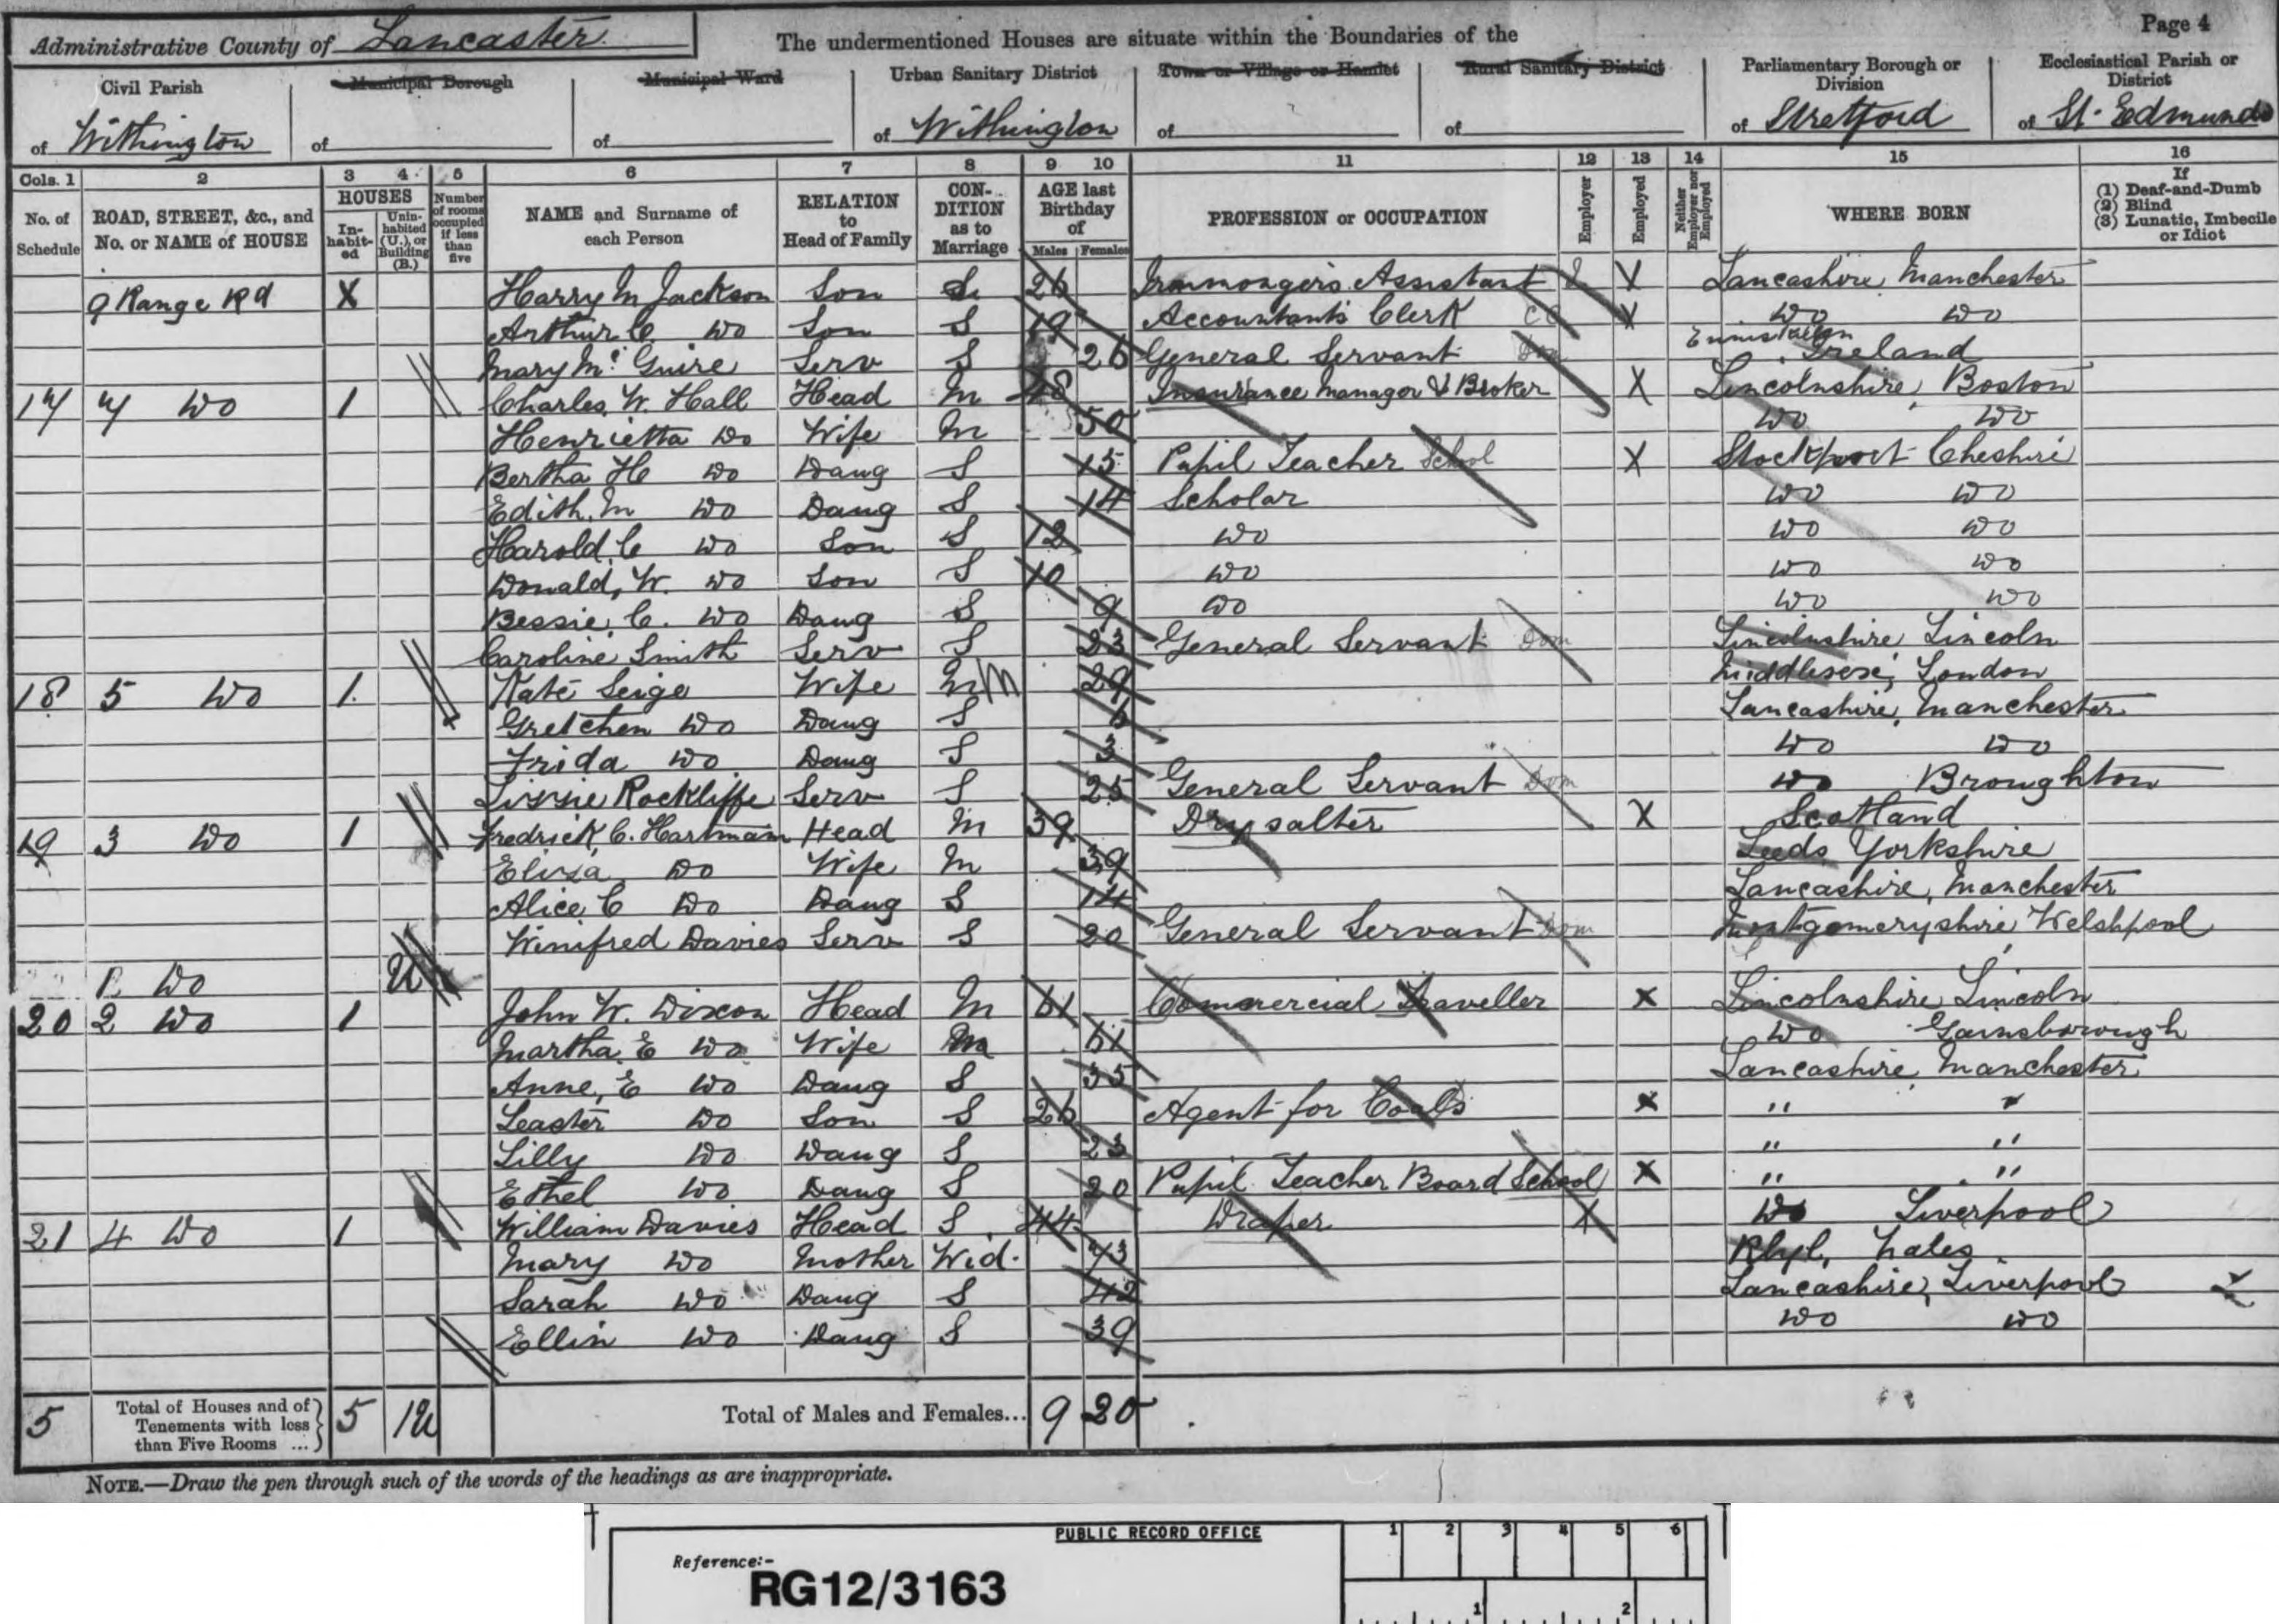 Page 4
Administrative County of Lancaster The undermentioned Houses are situate within the Boundaries of the
Civil Parish Municipal Borough Municipal Ward Urban Sanitary District Town or Village or Hamlet Rural Sanitary District Parliamentary Borough or Division Ecclesiastical Parish or District
of Withington of of of Withington of of of Stretford of St. Edmunds
Cols. 1 2 3 4 5 6 7 8 9 10 11 12 13 14 15 16
No. of Schedule ROAD, STREET, &c., and No. or NAME of HOUSE HOUSES Inhabited Uninhabited (U.), or Building (B.) Number of rooms occupied if less than five NAME and Surname of each Person RELATION to Head of Family CONDITION as to Marriage AGE last Birthday of Males Females PROFESSION or OCCUPATION Employer Employed Neither Employer nor Employed WHERE BORN If (1) Deaf-and-Dumb (2) Blind (3) Lunatic, Imbecile or Idiot
9 Range Rd X Harry M Jackson Son S 26 Ironmongers Assistant X Lancashire, Manchester
Arthur C. Do Son S 19 Accountants Clerk X Do Do
Mary Mc Guire Serv S 26 General Servant Dom Enniskillen Ireland
17 7 Do 1 Charles, W. Hall Head M 48 Insurance Manager & Broker X Lincolnshire, Boston
Henrietta Do Wife M 50 Do Do
Bertha H Do Daug S 15 Pupil Teacher School X Stockport Cheshire
Edith, M Do Daug S 14 Scholar Do Do
Harold, C Do Son S 12 Do Do Do
Donald, W. Do Son S 10 Do Do Do
Bessie, C. Do Daug S 9 Do Do Do
Caroline Smith Serv S 23 General Servant Dom Lincolnshire, Lincoln
18 5 Do 1 Kate Seige Wife M M 29 Middlesex, London
Gretchen Do Daug S 6 Lancashire, Manchester
Frida Do Daug S 3 Do Do
Lizzie Rockliffe Serv S 25 General Servant Dom Do Broughton
19 3 Do 1 Fredrick, C. Hartman Head M 39 Drysalter X Scotland
Eliza Do Wife M 39 Leeds Yorkshire
Alice C Do Daug S 14 Lancashire, Manchester
Winifred Davies Serv S 20 General Servant Dom Montgomeryshire, Welshpool
Do U
20 2 Do 1 John W. Dixon Head M 61 Commercial Traveller X Lincolnshire, Lincoln
Martha E Do Wife M 61 Do Gainsborough
Anne, E Do Daug S 35 Lancashire, Manchester
Leaster Do Son S 26 Agent for Coals X " "
Lilly Do Daug S 23 " "
Ethel Do Daug S 20 Pupil Teacher Board School X " "
21 4 Do 1 William Davies Head S 44 Draper X Do Liverpool
Mary Do Mother Wid. 73 Rhyl, Wales
Sarah Do Daug S 42 Lancashire, Liverpool
Ellin Do Daug S 39 Do Do
5 Total of Houses and of Tenements with less than Five Rooms ... 5 1U Total of Males and Females... 9 20
NOTE.—Draw the pen through such of the words of the headings as are inappropriate.
PUBLIC RECORD OFFICE 1 2 3 4 5 6
Reference:-
RG12/3163
1 2